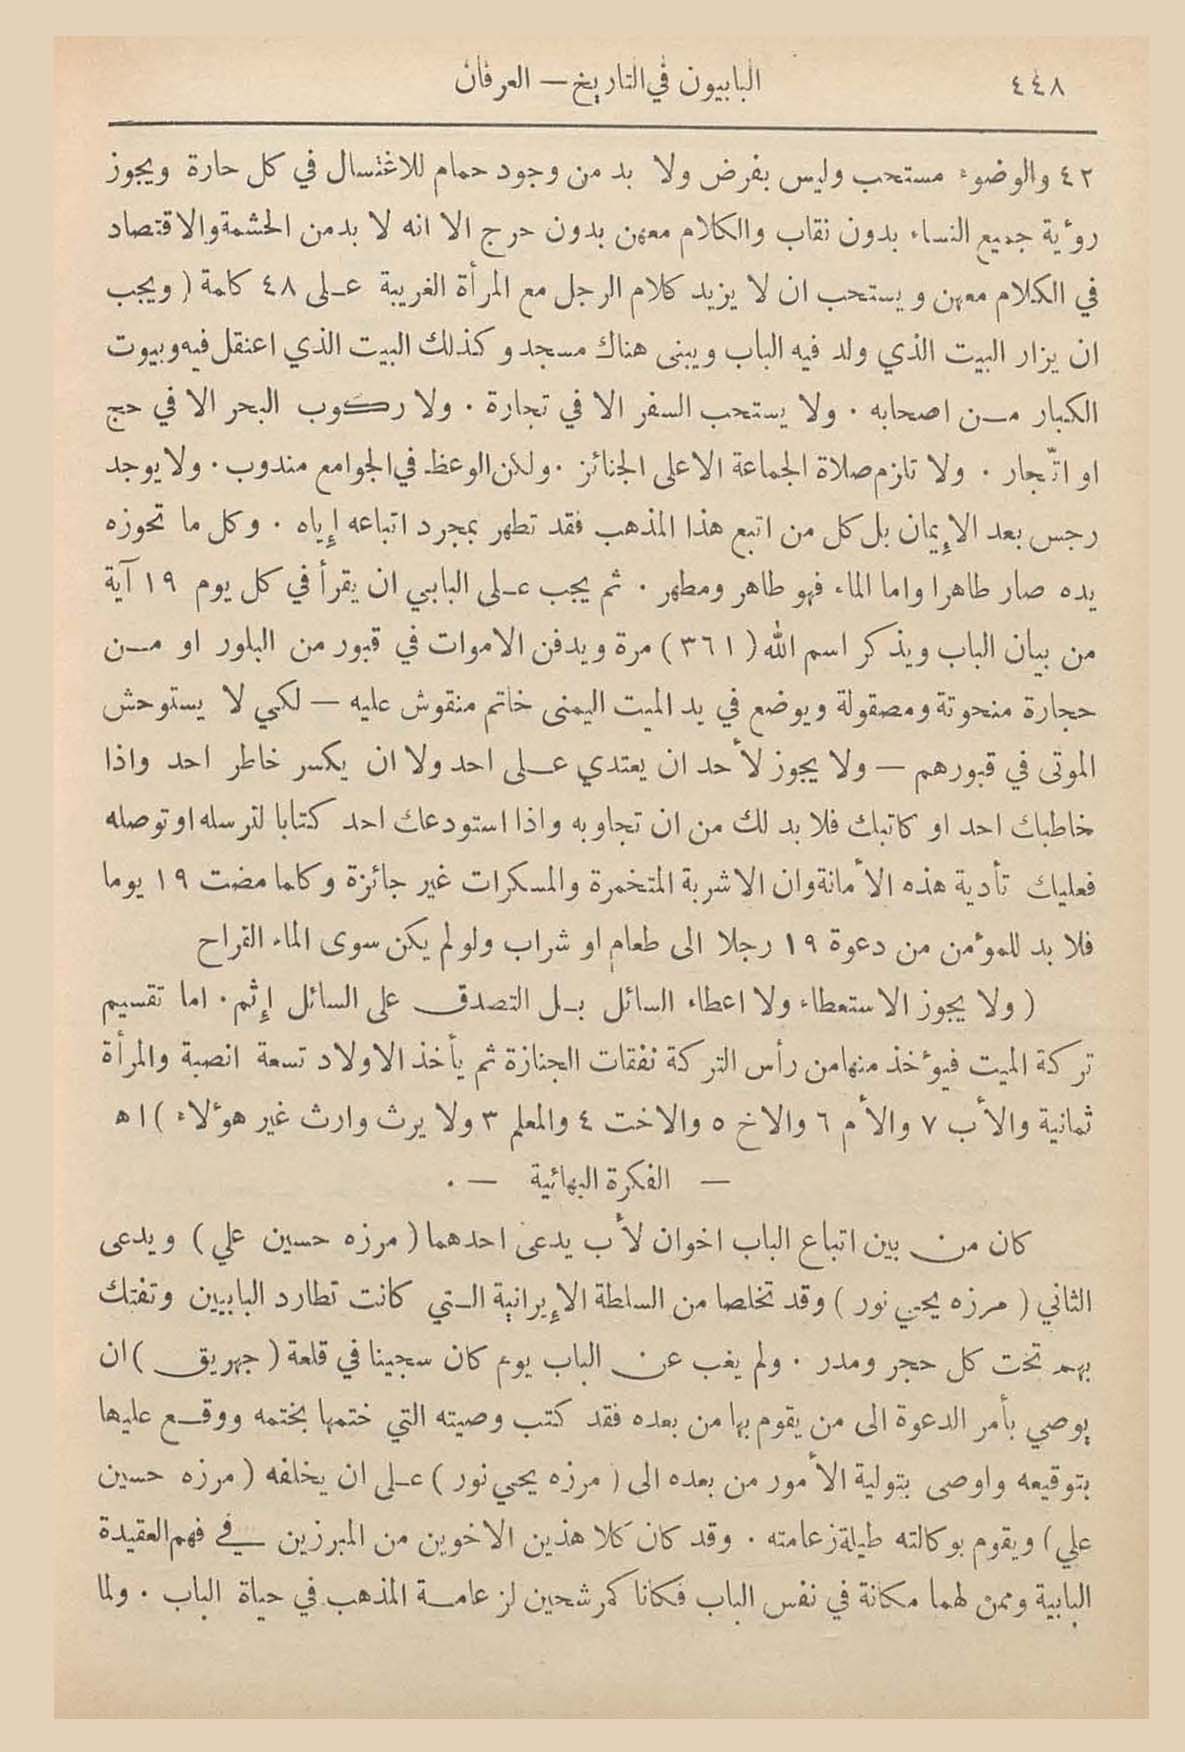 ٤٤٨ البابيون في التاريخ — العرفان
٤٢ والوضوء مستحب وليس بفرض ولا بد من وجود حمام للاغتسال في كل حارة ويجوز
روٴية جميع النساء بدون نقاب والكلام معهن بدون حرج الا انه لا بدمن الحشمةوالاقتصاد
في الكلام معهن ويستحب ان لا يزيد كلام الرجل مع المرأة الغريبة عـلى ٤٨ كلمة ( ويجب
ان يزار البيت الذي ولد فيه الباب ويبنى هناك مسجد وكذلك البيت الذي اعتقل فيه وبيوت
الكبار مـن اصحابه . ولا يستحب السفر الا في تجارة . ولا ركوب البحر الا في حج
او اتّجار . ولا تلزم صلاة الجماعة الا على الجنائز . ولكن الوعظ في الجوامع مندوب . ولا يوجد
رجس بعد الإيمان بل كل من اتبع هذا المذهب فقد تطهر بمجرد اتباعه إياه . وكل ما تحوزه
يده صار طاهرا واما الماء فهو طاهر ومطهر . ثم يجب عـلى البابي ان يقرأ في كل يوم ١٩ آية
من بيان الباب ويذكر اسم الله ( ٣٦١ ) مرة ويدفن الاموات في قبور من البلور او مـن
حجارة منحوتة ومصقولة ويوضع في يد الميت اليمنى خاتم منقوش عليه — لكي لا يستوحش
الموتى في قبورهم — ولا يجوز لأحد ان يعتدي عـلى احد ولا ان يكسر خاطر احد واذا
خاطبك احد او كاتبك فلا بد لك من ان تجاوبه واذا استودعك احد كتابا لترسله او توصله
فعليك تأدية هذه الأمانة وان الاشربة المتخمرة والمسكرات غير جائزة وكلما مضت ١٩ يوما
فلا بد للموٴمن من دعوة ١٩ رجلا الى طعام او شراب ولو لم يكن سوى الماء القراح
( ولا يجوز الاستعطاء ولا اعطاء السائل بـل التصدق على السائل إثم . اما تقسيم
تركة الميت فيوٴخذ منها من رأس التركة نفقات الجنازة ثم يأخذ الاولاد تسعة انصبة والمرأة
ثمانية والأب ٧ والأم ٦ والاخ ٥ والاخت ٤ والمعلم ٣ ولا يرث وارث غير هوٴلاء ) اه
— الفكرة البهائية — .
كان من بين اتباع الباب اخوان لأب يدعى احدهما ( مرزه حسين علي ) ويدعى
الثاني ( مرزه يحيى نور ) وقد تخلصا من السلطة الإيرانية الـتي كانت تطارد البابيين وتفتك
بهم تحت كل حجر ومدر . ولم يغب عن الباب يوم كان سجينا في قلعة ( جهريق ) ان
يوصي بأمر الدعوة الى من يقوم بها من بعده فقد كتب وصيته التي ختمها بختمه ووقـع عليها
بتوقيعه واوصى بتولية الأمور من بعده الى ( مرزه يحيى نور ) عـلى ان يخلفه ( مرزه حسين
علي ) ويقوم بوكالته طيلة زعامته . وقد كان كلا هذين الاخوين من المبرزين في فهم العقيدة
البابية وممن لهما مكانة في نفس الباب فكانا كمرشحين لزعامـة المذهب في حياة الباب . ولما